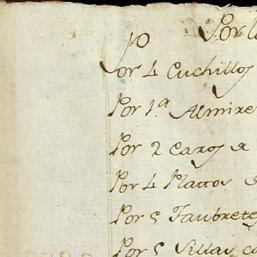 Por
Por 4 Cuchillos
Por 1.ª Almire
Por 2 Caxos
Por 4 Plattos
Por 5 Taubrete
Por 5 Sillas